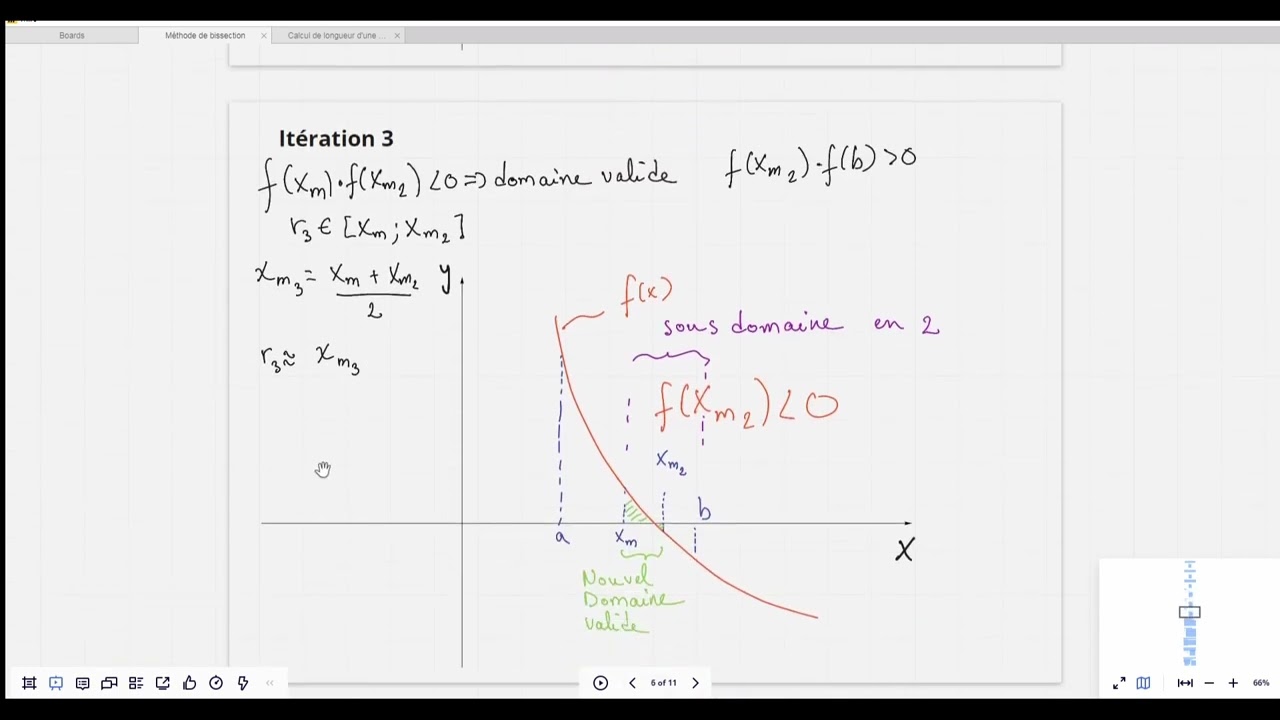 Boards
Méthode de bissection
Calcul de longueur d'une ...
Itération 3
f(xm)·f(xm2) <0 => domaine valide
f(xm2)·f(b) >0
r3 ∈ [xm ; xm2]
xm3 = xm + xm2
2
y
f(x)
sous domaine en 2
r3 ≈ xm3
f(xm2) < 0
xm2
b
a
xm
X
Nouvel
Domaine
valide
6 of 11
66%